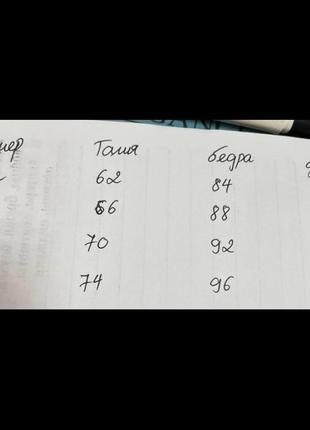 Талия бедра
62 84
66 88
70 92
74 96